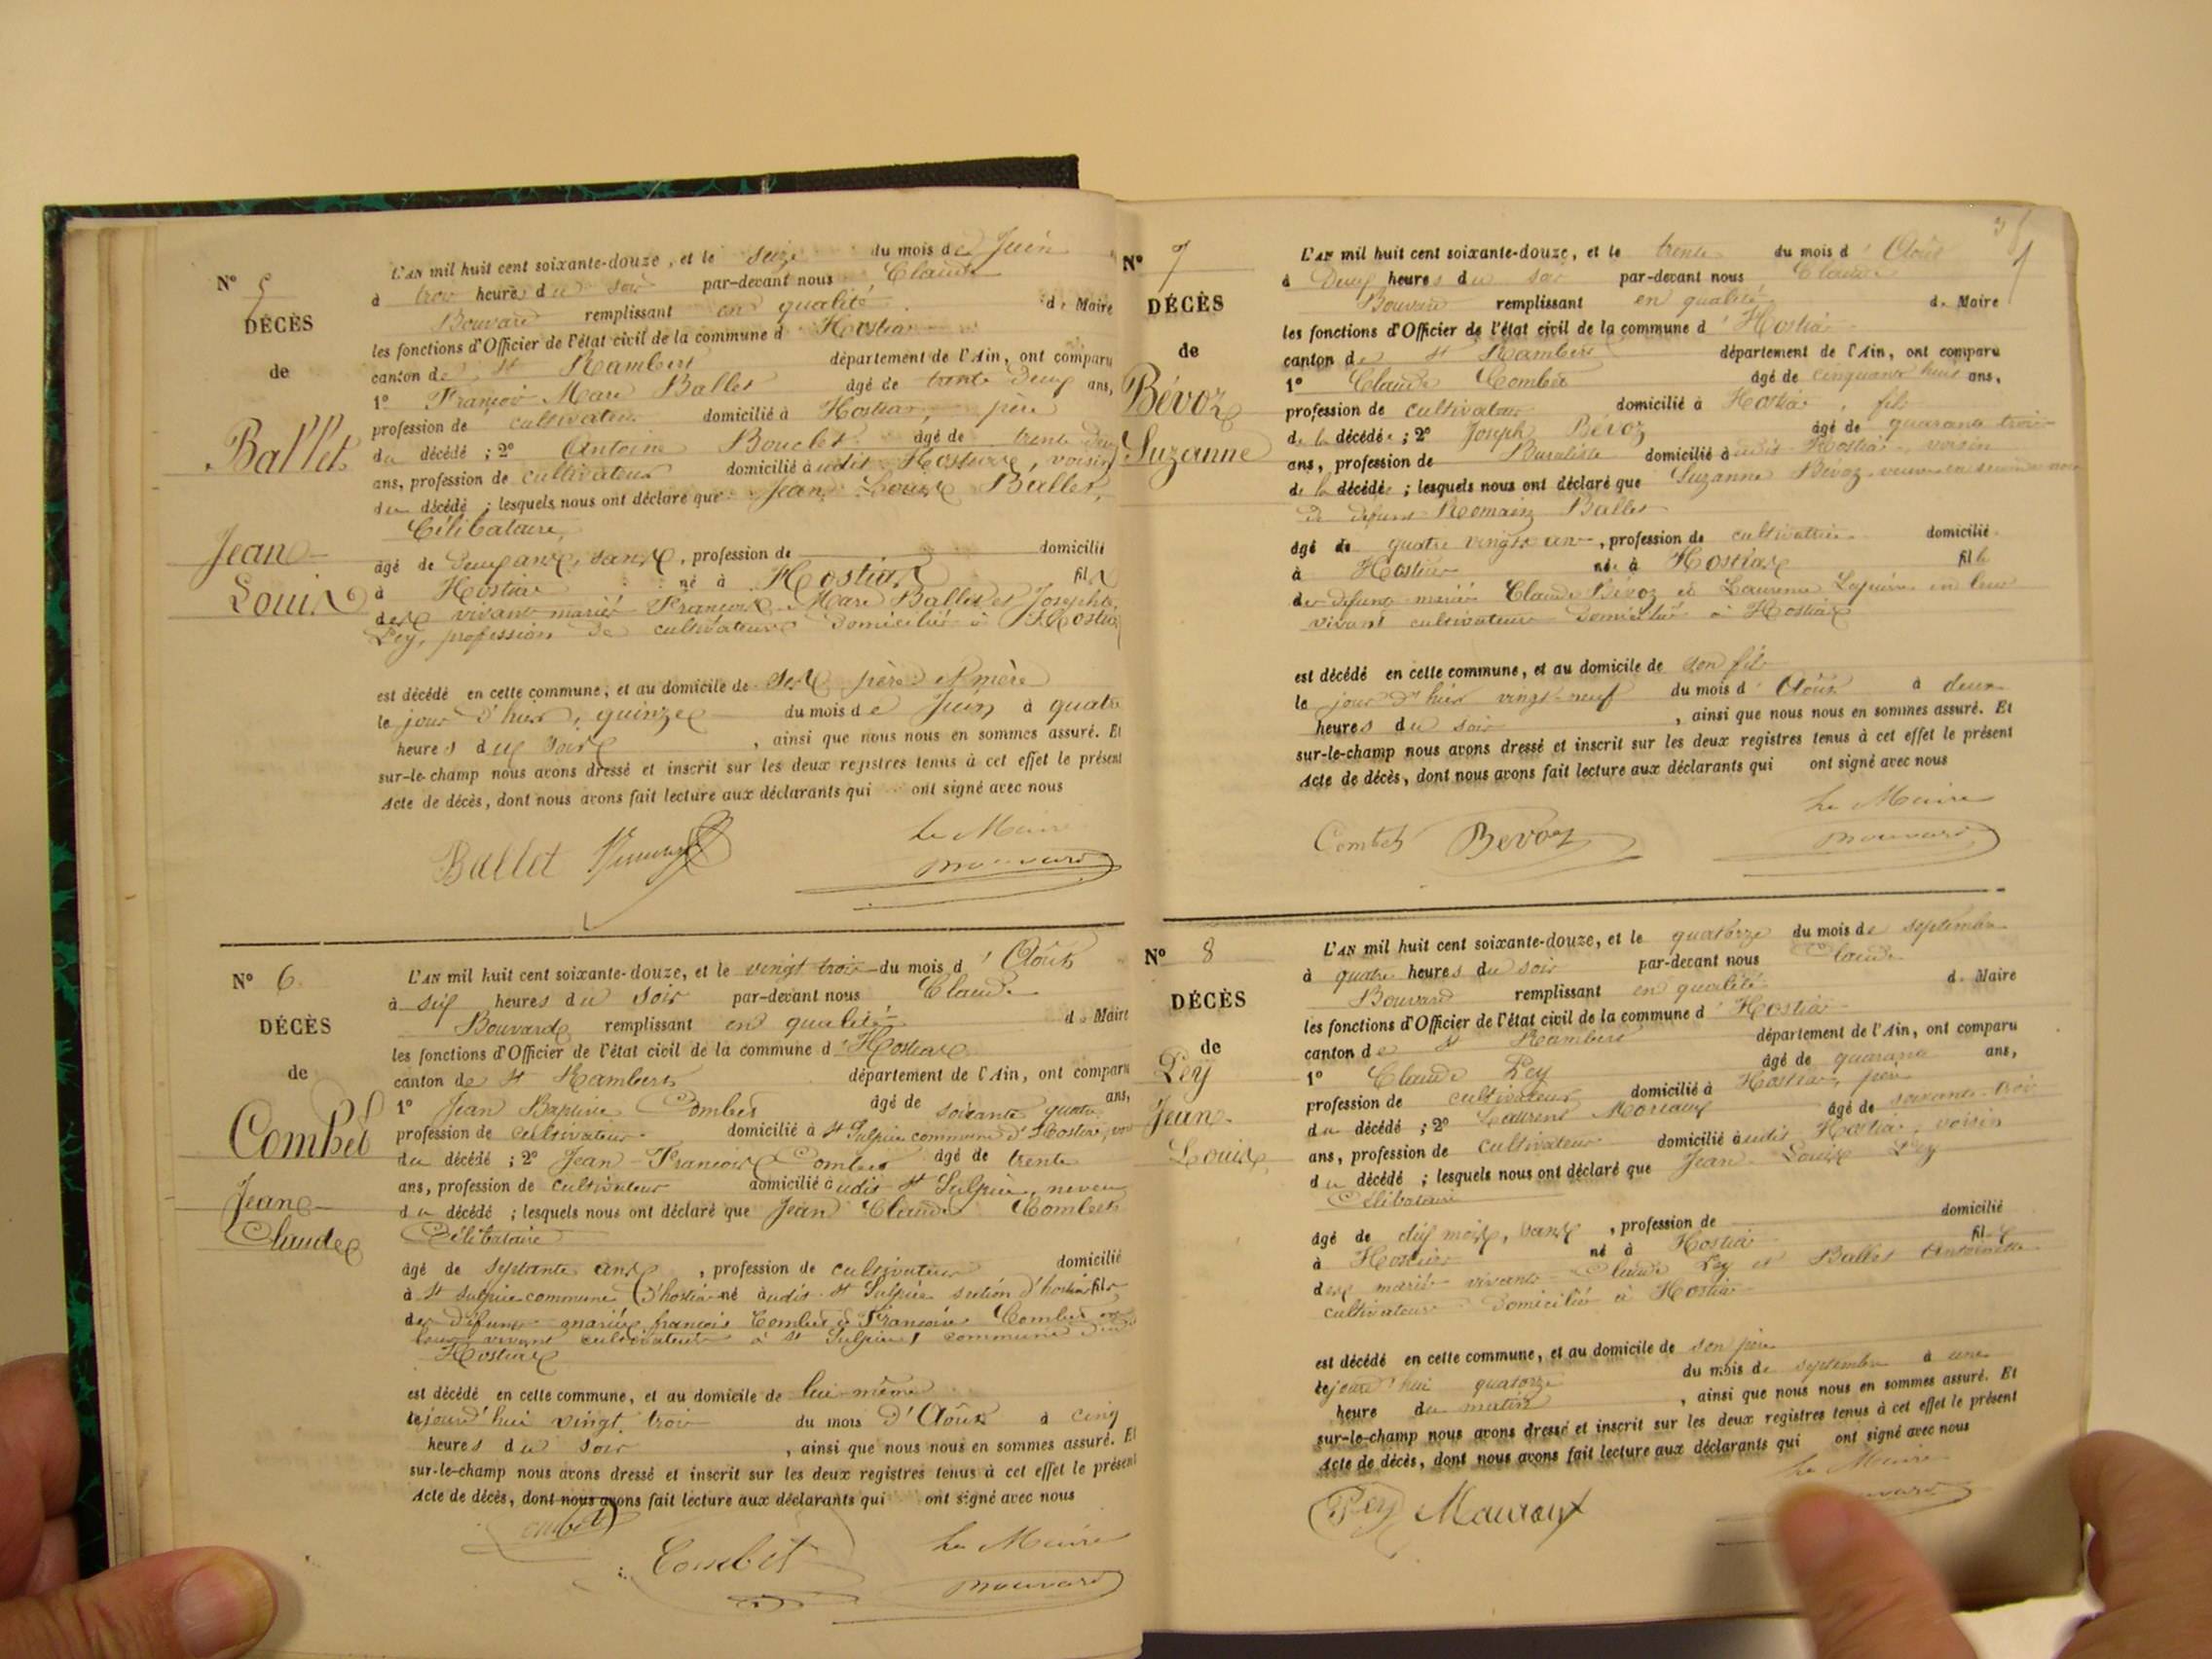 N° 5
DÉCÈS
de
Ballet
Jean
Louis
L'AN mil huit cent soixante-douze, et le seize du mois de Juin
à trois heures du soir par-devant nous Claude
Bouvard remplissant en qualité de Maire
les fonctions d'Officier de l'état civil de la commune d'Hostias
canton de St Rambert département de l'Ain, ont comparu
1° François Marc Ballet âgé de trente deux ans,
profession de cultivateur domicilié à Hostias, père
du décédé ; 2° Antoine Bouclet âgé de trente deux
ans, profession de cultivateur domicilié à udit Hostias, voisin
du décédé ; lesquels nous ont déclaré que Jean Louis Ballet,
Célibataire,
âgé de deux ans, sans, profession de domicilié
à Hostias né à Hostias fils
des vivant mariés François Marc Ballet et Josephte
Pey, profession de cultivateurs domiciliés à Hostias
est décédé en cette commune, et au domicile de ses père et mère
le jour d'hier, quinze du mois de Juin à quatre
heures du soir, ainsi que nous nous en sommes assuré. Et
sur-le-champ nous avons dressé et inscrit sur les deux registres tenus à cet effet le présent
Acte de décès, dont nous avons fait lecture aux déclarants qui ont signé avec nous
Le Maire
Ballet Bouvard
N° 6.
DÉCÈS
de
Combet
Jean
Claude
L'AN mil huit cent soixante-douze, et le vingt trois du mois d'Août
à six heures du soir par-devant nous Claude
Bouvard remplissant en qualité de Maire
les fonctions d'Officier de l'état civil de la commune d'Hostias
canton de St Rambert département de l'Ain, ont comparu
1° Jean Baptiste Combet âgé de soixante quatre ans,
profession de cultivateur domicilié à St Sulpice commune d'Hostias,
du décédé ; 2° Jean François Combet âgé de trente
ans, profession de cultivateur domicilié à udit St Sulpice, neveu
du décédé ; lesquels nous ont déclaré que Jean Claude Combet
Célibataire
âgé de septante ans, profession de cultivateur domicilié
à St Sulpice commune d'hostias né àudit St Sulpice section d'hostias fils
de défunts mariés françois Combet et Françoise Combet en
leur vivant cultivateurs à St Sulpice, commune d
Hostias
est décédé en cette commune, et au domicile de lui-même
lejourd'hui vingt trois du mois d'Août à cinq
heures du soir, ainsi que nous nous en sommes assuré. Et
sur-le-champ nous avons dressé et inscrit sur les deux registres tenus à cet effet le présent
Acte de décès, dont nous avons fait lecture aux déclarants qui ont signé avec nous
Combet Combet Le Maire
Bouvard
N° 7
DÉCÈS
de
Bévoz
Suzanne
L'AN mil huit cent soixante-douze, et le trente du mois d'Août
à Deux heures du soir par-devant nous Claude
Bouvard remplissant en qualité de Maire
les fonctions d'Officier de l'état civil de la commune d'Hostias
canton de St Rambert département de l'Ain, ont comparu
1° Claude Combet âgé de cinquante huit ans,
profession de cultivateur domicilié à Hostias, fils
de la décédée ; 2° Joseph Bévoz âgé de quarante trois
ans, profession de Buraliste domicilié à udit Hostias, voisin
de la décédée ; lesquels nous ont déclaré que Suzanne Bévoz veuve en
de défunt Romain Ballet
âgé de quatre vingts un, profession de cultivatrice domicilié
à Hostias née à Hostias fille
de défunts mariés Claude Bévoz et Laurence en leur
vivant cultivateurs domiciliés à Hostias
est décédé en cette commune, et au domicile de son fils
le jour d'hier vingt-neuf du mois d'Août à deux
heures du soir, ainsi que nous nous en sommes assuré. Et
sur-le-champ nous avons dressé et inscrit sur les deux registres tenus à cet effet le présent
Acte de décès, dont nous avons fait lecture aux déclarants qui ont signé avec nous
Le Maire
Combet Bevoz Bouvard
N° 8
DÉCÈS
de
Pey
Jean
Louis
L'AN mil huit cent soixante-douze, et le quatorze du mois de septembre
à quatre heures du soir par-devant nous Claude
Bouvard remplissant en qualité de Maire
les fonctions d'Officier de l'état civil de la commune d'Hostias
canton de St Rambert département de l'Ain, ont comparu
1° Claude Pey âgé de quarante ans,
profession de cultivateur domicilié à Hostias, père
du décédé ; 2° Laurent âgé de soixante trois
ans, profession de cultivateur domicilié à udit Hostias, voisin
du décédé ; lesquels nous ont déclaré que Jean Louis Pey
Célibataire
âgé de dix mois, sans, profession de domicilié
à Hostias né à Hostias fils
des mariés vivants Claude Pey et Ballet Antoinette
cultivateurs domiciliés à Hostias
est décédé en cette commune, et au domicile de son père
lejourd'hui quatorze du mois de septembre à une
heure du matin, ainsi que nous nous en sommes assuré. Et
sur-le-champ nous avons dressé et inscrit sur les deux registres tenus à cet effet le présent
Acte de décès, dont nous avons fait lecture aux déclarants qui ont signé avec nous
Le Maire
Pey